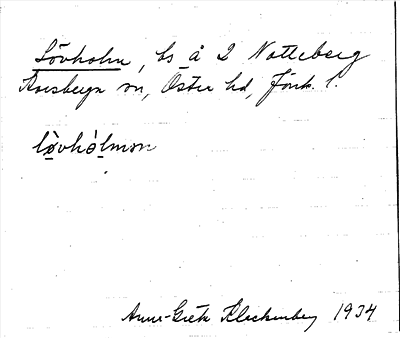 Lövholm, bs å 2 Notteberg
Korsberga sn, Östra hd, Jönk. l.
lo̠vhòlmən
Anne-Grete Kleckenberg 1934